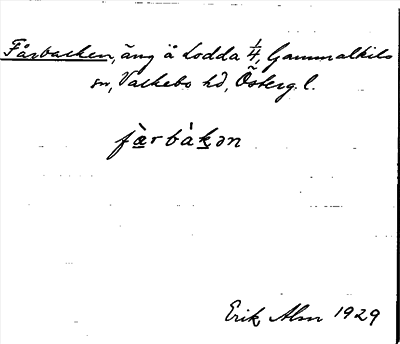 Fårbacken, äng å Lodda 1/4, Gammalkils
sn, Valkebo hd, Österg. l.
fæ̀rbákən
Erik Alm 1929